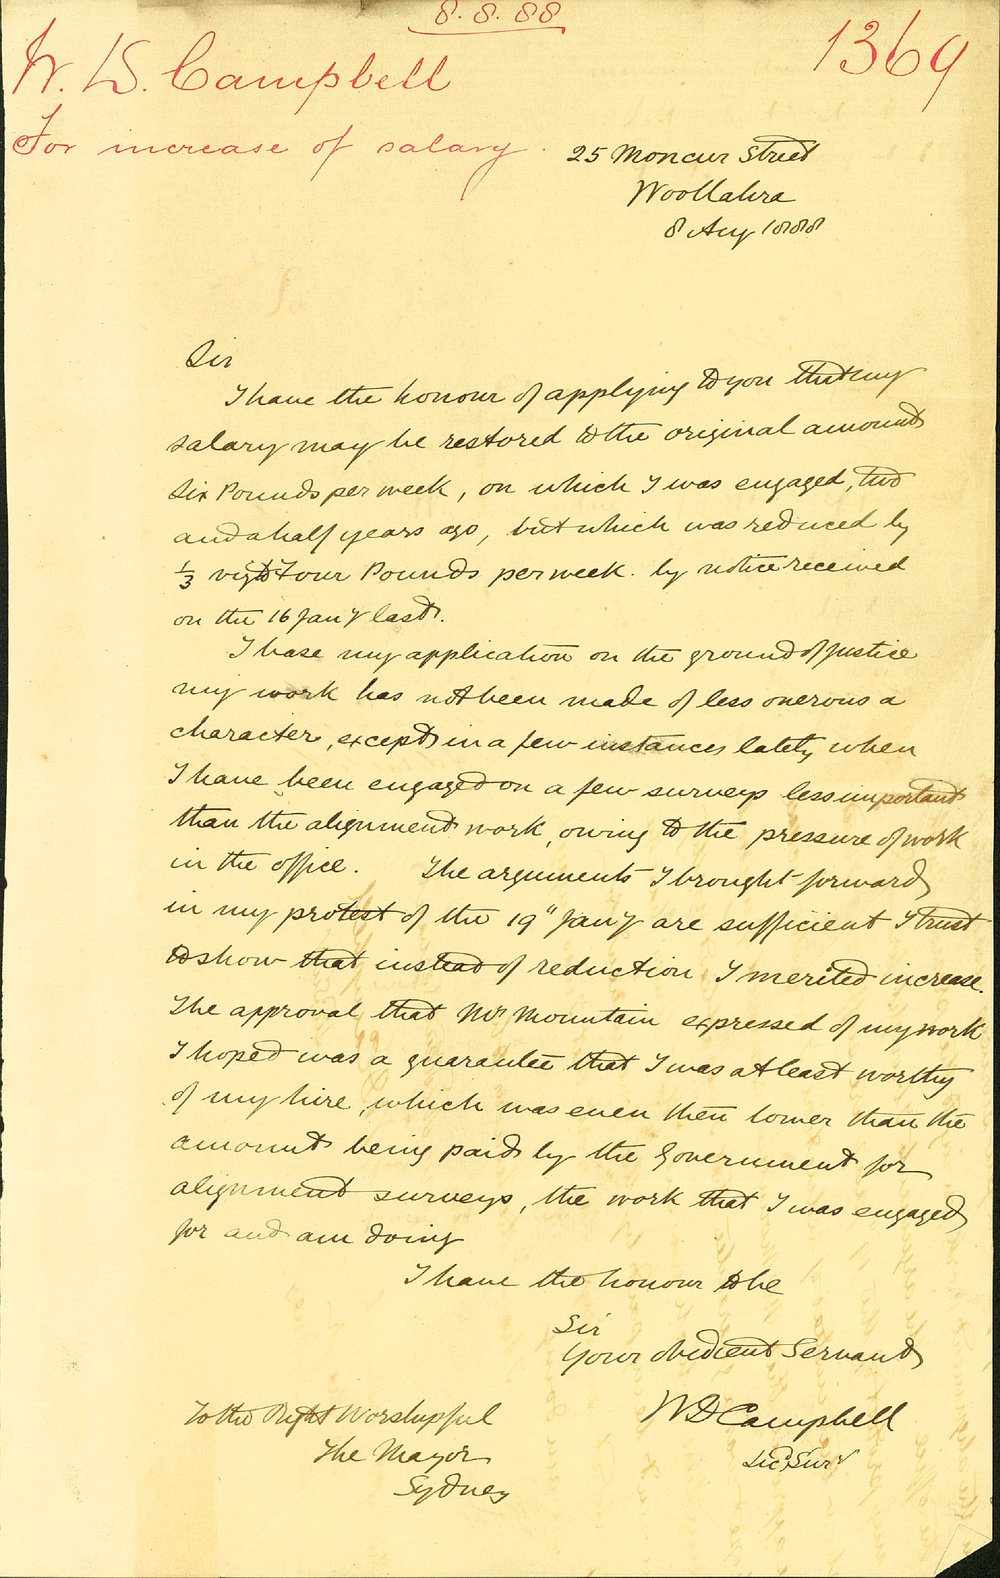 8.8.88
W. D. Campbell
1369
For increase of salary.
25 Moncur Street
Woollahra
8 Aug 1888
Sir
I have the honour of applying to you that my
salary may be restored to the original amount
Six Pounds per week, on which I was engaged, two
and a half years ago, but which was reduced by
1/3 viz to Four Pounds per week. by notice received
on the 16 Jany last.
I base my application on the ground of justice
my work has not been made of less onerous a
character, except in a few instances lately when
I have been engaged on a few surveys less important
than the alignment work, owing to the pressure of work
in the office. The arguments I brought forward
in my protest of the 19" Jany are sufficient I trust
to show that instead of reduction I merited increase.
The approval that Mr Mountain expressed of my work
I hoped was a guarantee that I was at least worthy
of my hire, which was even then lower than the
amount being paid by the Government for
alignment surveys, the work that I was engaged
for and am doing
I have the honour to be
Sir
Your obedient Servant
WD Campbell
Licd Surv
To the Right Worshipful
The Mayor
Sydney